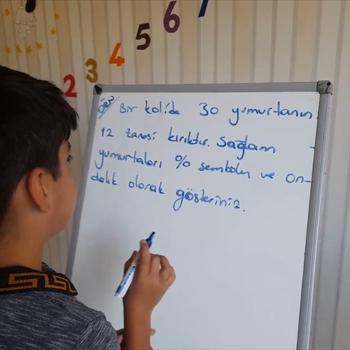 2 3 4 5 6 7
Ör: Bir kolide 30 yumurtanın
12 tanesi kırıldır. Sağlam
yumurtaları % sembolü ve on-
dalık olarak gösteriniz.